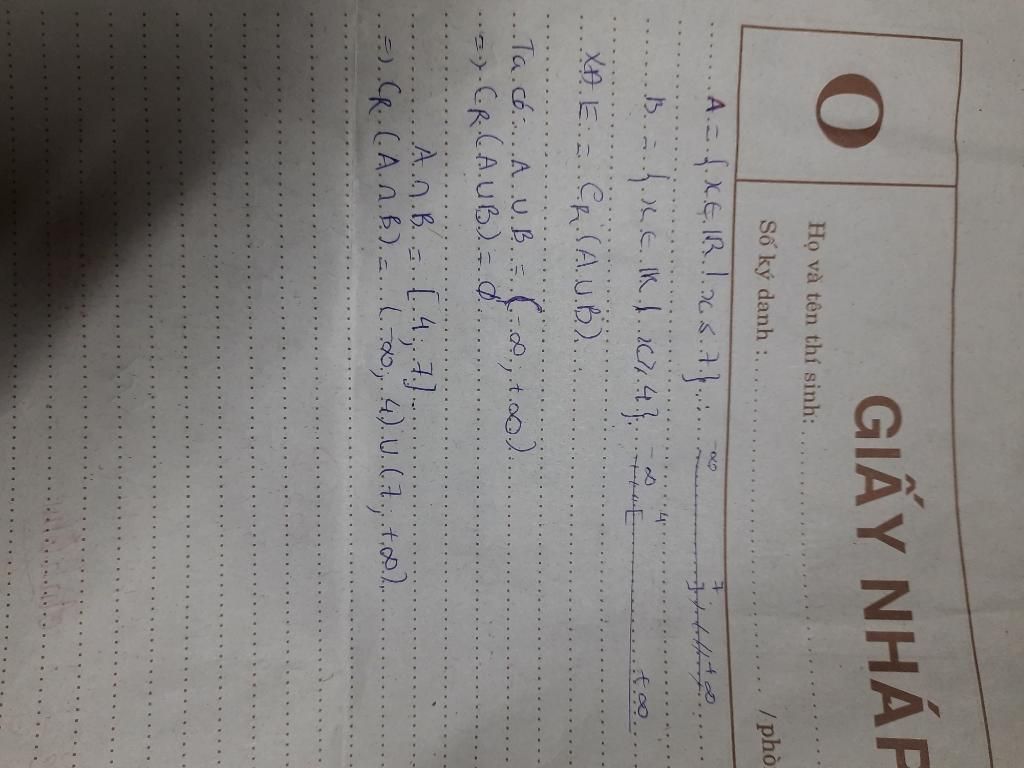 GIẤY NHÁP
O
Họ và tên thí sinh:
Số ký danh : / phò
A = { x ∈ ℝ | x ≤ 7 }
-∞ 7 ] +∞
B = { x ∈ ℝ | x ≥ 4 }
-∞ 4 [ +∞
E = Cℝ (A ∪ B)
Ta có A ∪ B = (-∞ ; +∞)
=> Cℝ (A ∪ B) = ∅
A ∩ B = [ 4 ; 7 ]
=> Cℝ (A ∩ B) = (-∞ ; 4) ∪ (7 ; +∞)